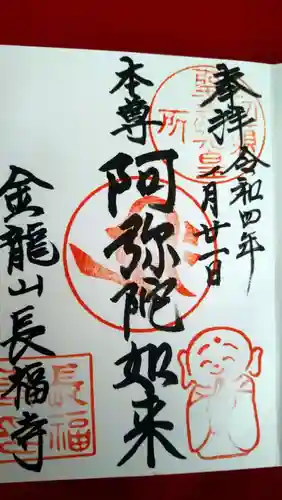 奉拝
令和四年
月廿一日
本尊
阿弥陀如来
金龍山長福寺
長福